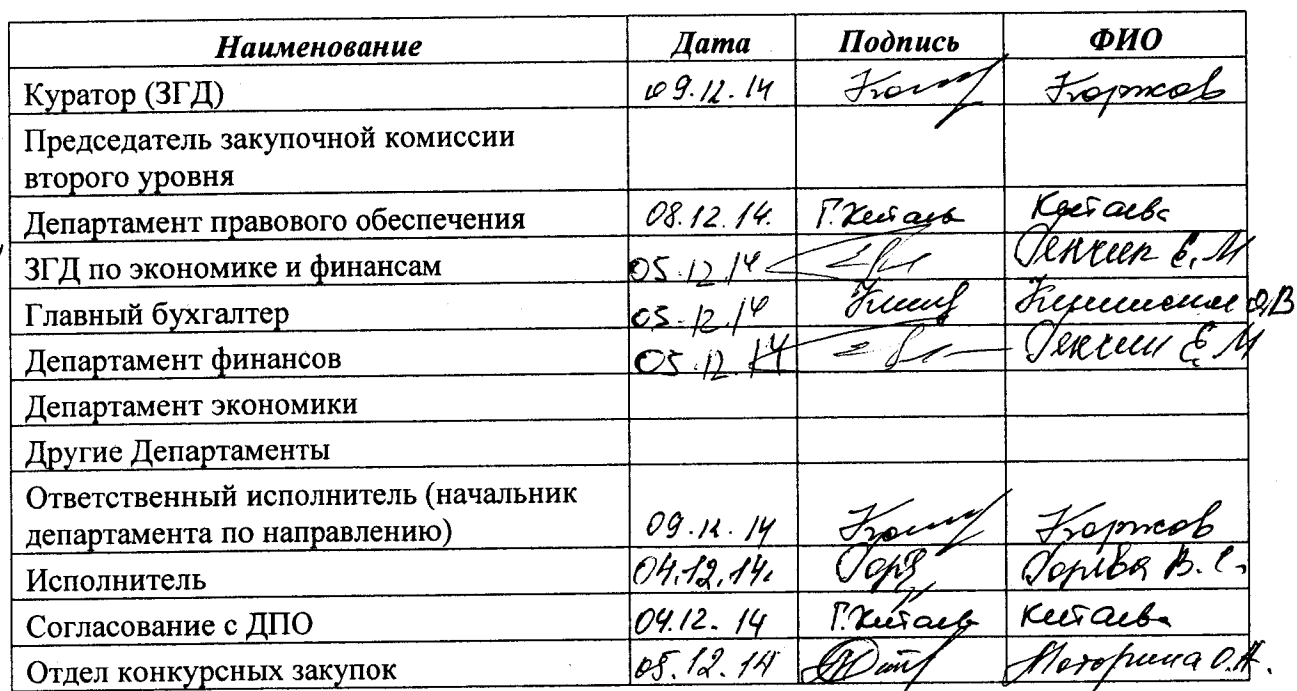 Наименование Дата Подпись ФИО
Куратор (ЗГД) 09.12.14 Коржов
Председатель закупочной комиссии
второго уровня
Департамент правового обеспечения 08.12.14. Г.Китаева Китаева
ЗГД по экономике и финансам 05.12.14 Генкин Е.М
Главный бухгалтер 05.12.14 О.В
Департамент финансов 05.12.14 Генкин Е.М
Департамент экономики
Другие Департаменты
Ответственный исполнитель (начальник
департамента по направлению) 09.12.14 Коржов
Исполнитель 04.12.14. В.С.
Согласование с ДПО 04.12.14 Г.Китаева Китаева
Отдел конкурсных закупок 05.12.14 Моторина О.А.